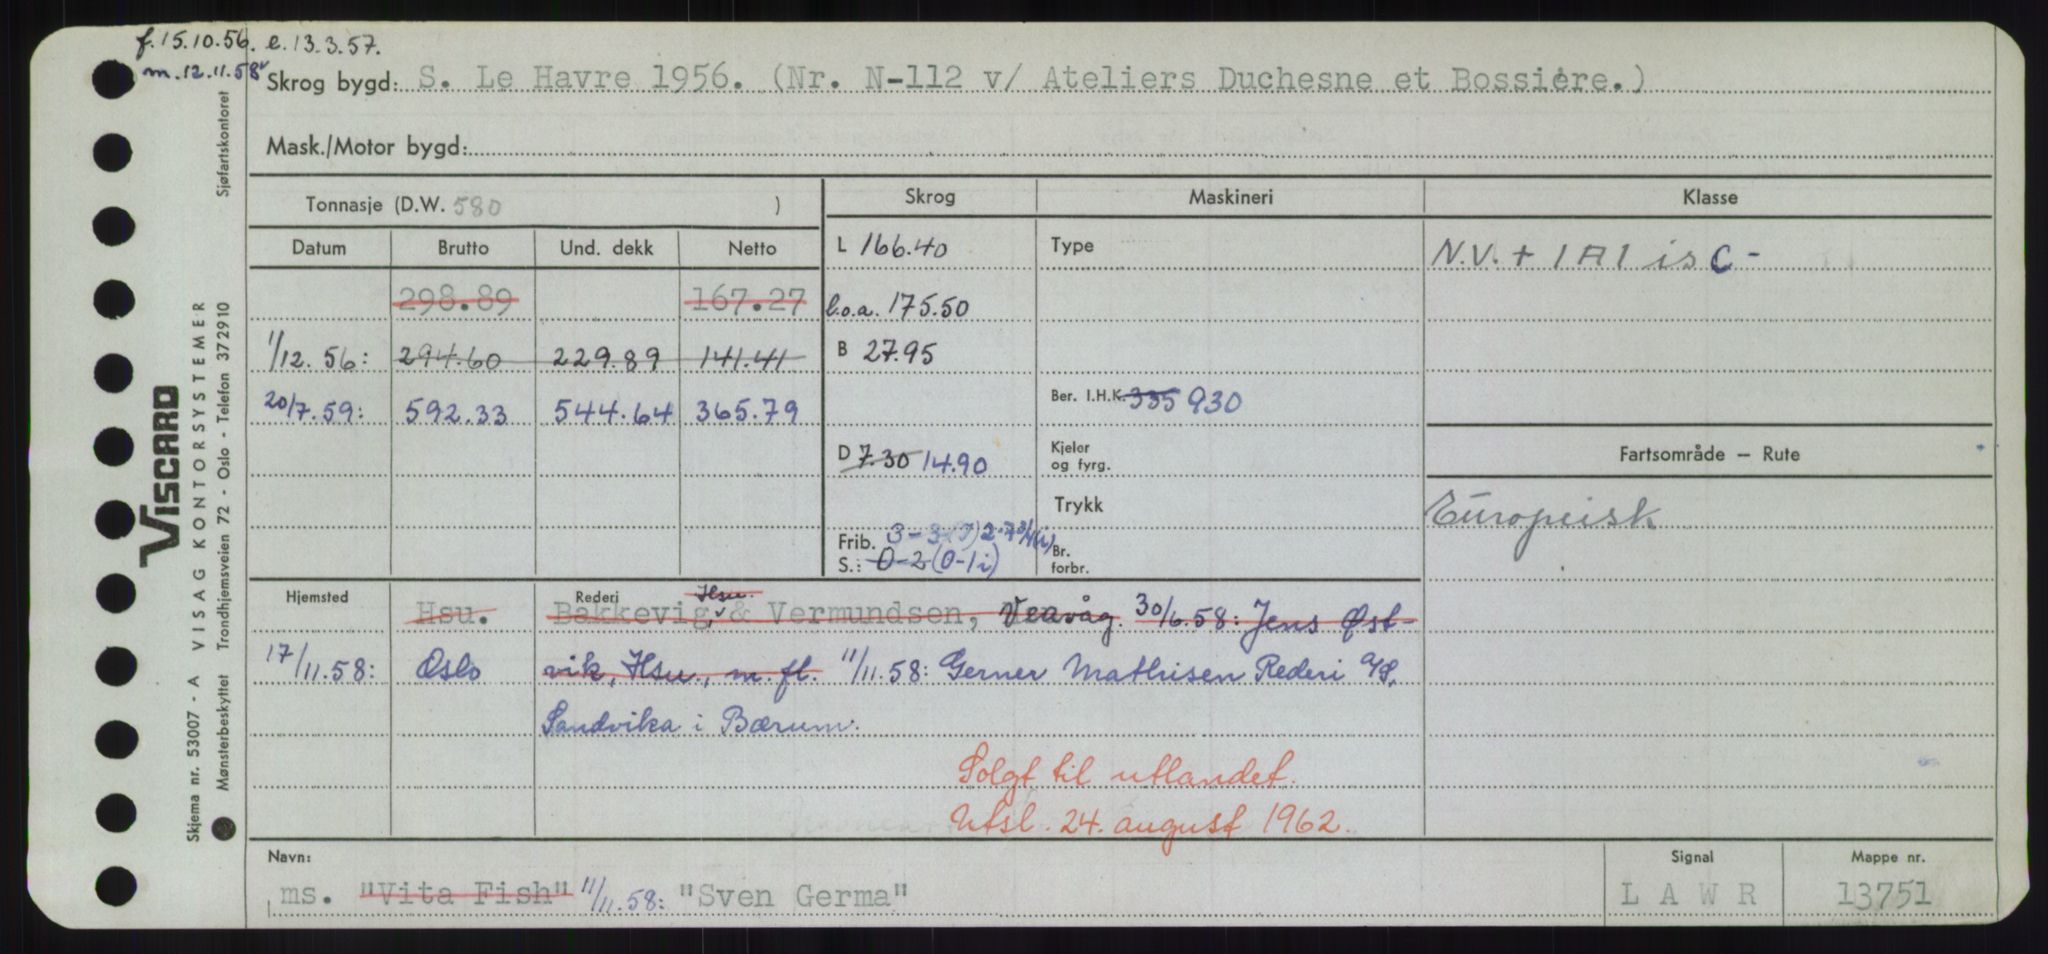 f. 15.10.56. e. 13.3.57.
m. 12.11.58
Skrog bygd: S. Le Havre 1956. (Nr. N-112 v/ Ateliers Duchesne et Bossiére.)
Mask./Motor bygd:
Tonnasje (D.W. 580 )
Skrog Maskineri Klasse
Datum Brutto Und. dekk Netto
L 166.40 Type N.V. + 1A1 is C -
298.89 167.27 l.o.a. 175.50
1/12.56: 294.60 229.89 141.41 B 27.95
20/7.59: 592.33 544.64 365.79 Ber. I.H.K. 335 930
D 7.30 14.90 Kjeler og fyrg. Fartsområde — Rute
Trykk Europeisk
Frib. 3-3 2-7 3/4(i)
S.: 0-2 (0-1i) Br. forbr.
Hjemsted Rederi Hsu.
Hsu. Bakkevig & Vermundsen, Veavåg. 30/6.58: Jens Øst-
17/11.58: Oslo vik, Hsu., m. fl. 11/11.58: Gerner Mathisen Rederi A/S,
Sandvika i Bærum.
Solgt til utlandet.
Utsl. 24. august 1962.
Navn: Signal Mappe nr.
ms. "Vita Fish" 11/11.58: "Sven Germa" L A W R 13751
VISCARD
Skjema nr. 53007 - A VISAG KONTORSYSTEMER Sjøfartskontoret
Mønsterbeskyttet Trondhjemsveien 72 - Oslo - Telefon 372910